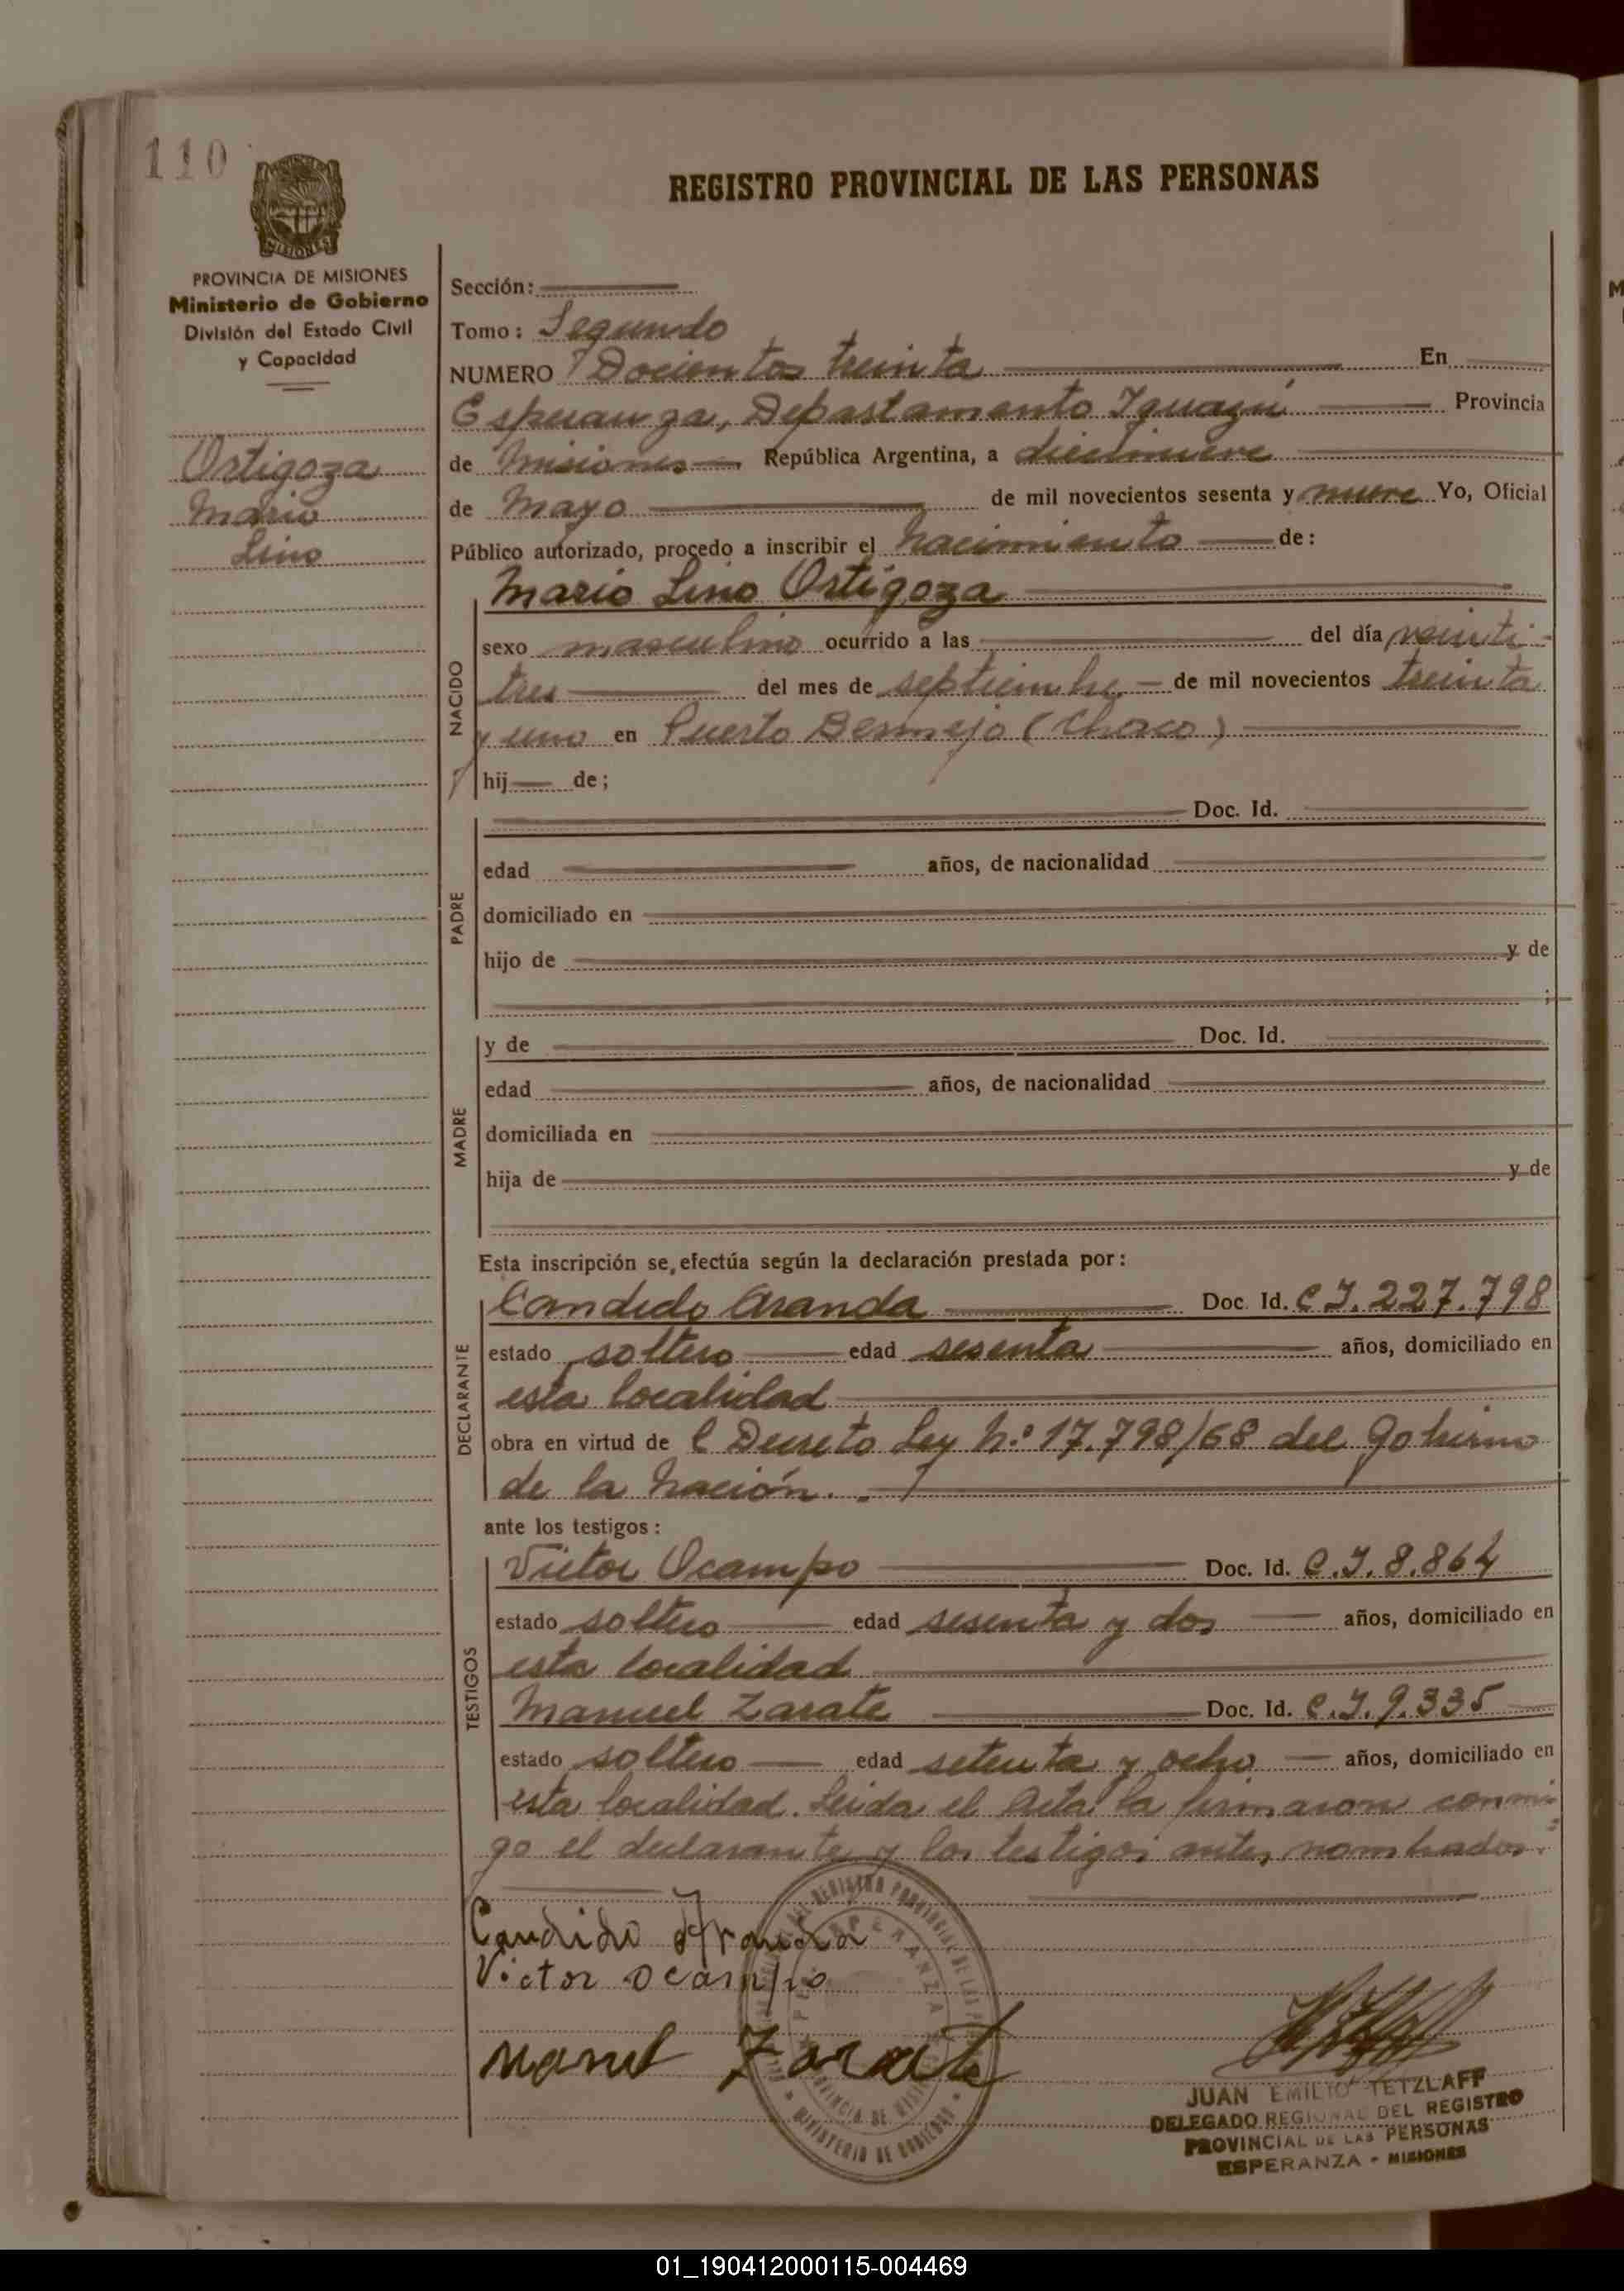 110
REGISTRO PROVINCIAL DE LAS PERSONAS
MISIONES
PROVINCIA DE MISIONES
Ministerio de Gobierno
División del Estado Civil
y Capacidad
Ortigoza
Mario
Lino
Sección:
Tomo: Segundo
NUMERO Docientos treinta En
Esperanza, Departamento Iguazú Provincia
de Misiones República Argentina, a diecinueve
de Mayo de mil novecientos sesenta y nueve Yo, Oficial
Público autorizado, procedo a inscribir el Nacimiento de:
NACIDO
Mario Lino Ortigoza
sexo masculino ocurrido a las del día veinti-
tres del mes de septiembre de mil novecientos treinta
y uno en Puerto Bermejo (Chaco)
hij de;
PADRE
Doc. Id.
edad años, de nacionalidad
domiciliado en
hijo de y de
;
MADRE
y de Doc. Id.
edad años, de nacionalidad
domiciliada en
hija de y de
Esta inscripción se efectúa según la declaración prestada por:
DECLARANTE
Candido Aranda Doc. Id. C I. 227.798
estado soltero edad sesenta años, domiciliado en
esta localidad
obra en virtud de l Decreto Ley N.º 17.798/68 del Gobierno
de la Nación.
ante los testigos:
TESTIGOS
Victor Ocampo Doc. Id. C.I. 8.864
estado soltero edad sesenta y dos años, domiciliado en
esta localidad
Manuel Zarate Doc. Id. C.I. 9.335
estado soltero edad setenta y ocho años, domiciliado en
esta localidad. Leida el Acta la firmaron conmi-
go el declarante y los testigos antes nombrados.
Candido Aranda
Victor Ocampo
Manuel Zarate
REGISTRO PROVINCIAL DE LAS
ESPERANZA
PROVINCIA DE MISIONES
MINISTERIO DE GOBIERNO
JUAN EMILIO TETZLAFF
DELEGADO REGIONAL DEL REGISTRO
PROVINCIAL DE LAS PERSONAS
ESPERANZA - MISIONES
01_190412000115-004469